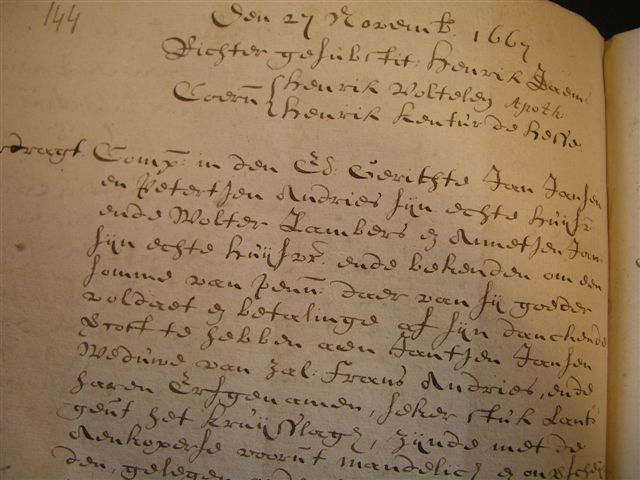 144
Den 27 Novemb: 1667
Richter gesubstit: Henrik Daems
Coern: Henrik Voltelen Apotk
Henrik kentur de hesse
dragt. Comp: in den Ed: Gerichte Jan Jansen
en Petertjen Andries sijn echte huijsfr
ende Wolter Lambers en Annetjen Jans
sijn echte huijsvr: ende bekenden om een
somme van penn: daer van sij goeder
voldaet en betalinge af sijn danckende
vercoft te hebben aen Jantjen Jansen
Weduwe van zal: Frans Andries, ende
haren Erfgenamen, seker stuk Lants
gent het kruijsslagh, zijnde met de
Aenkoperse voornt mandelich en onbeschei
den, gelegen